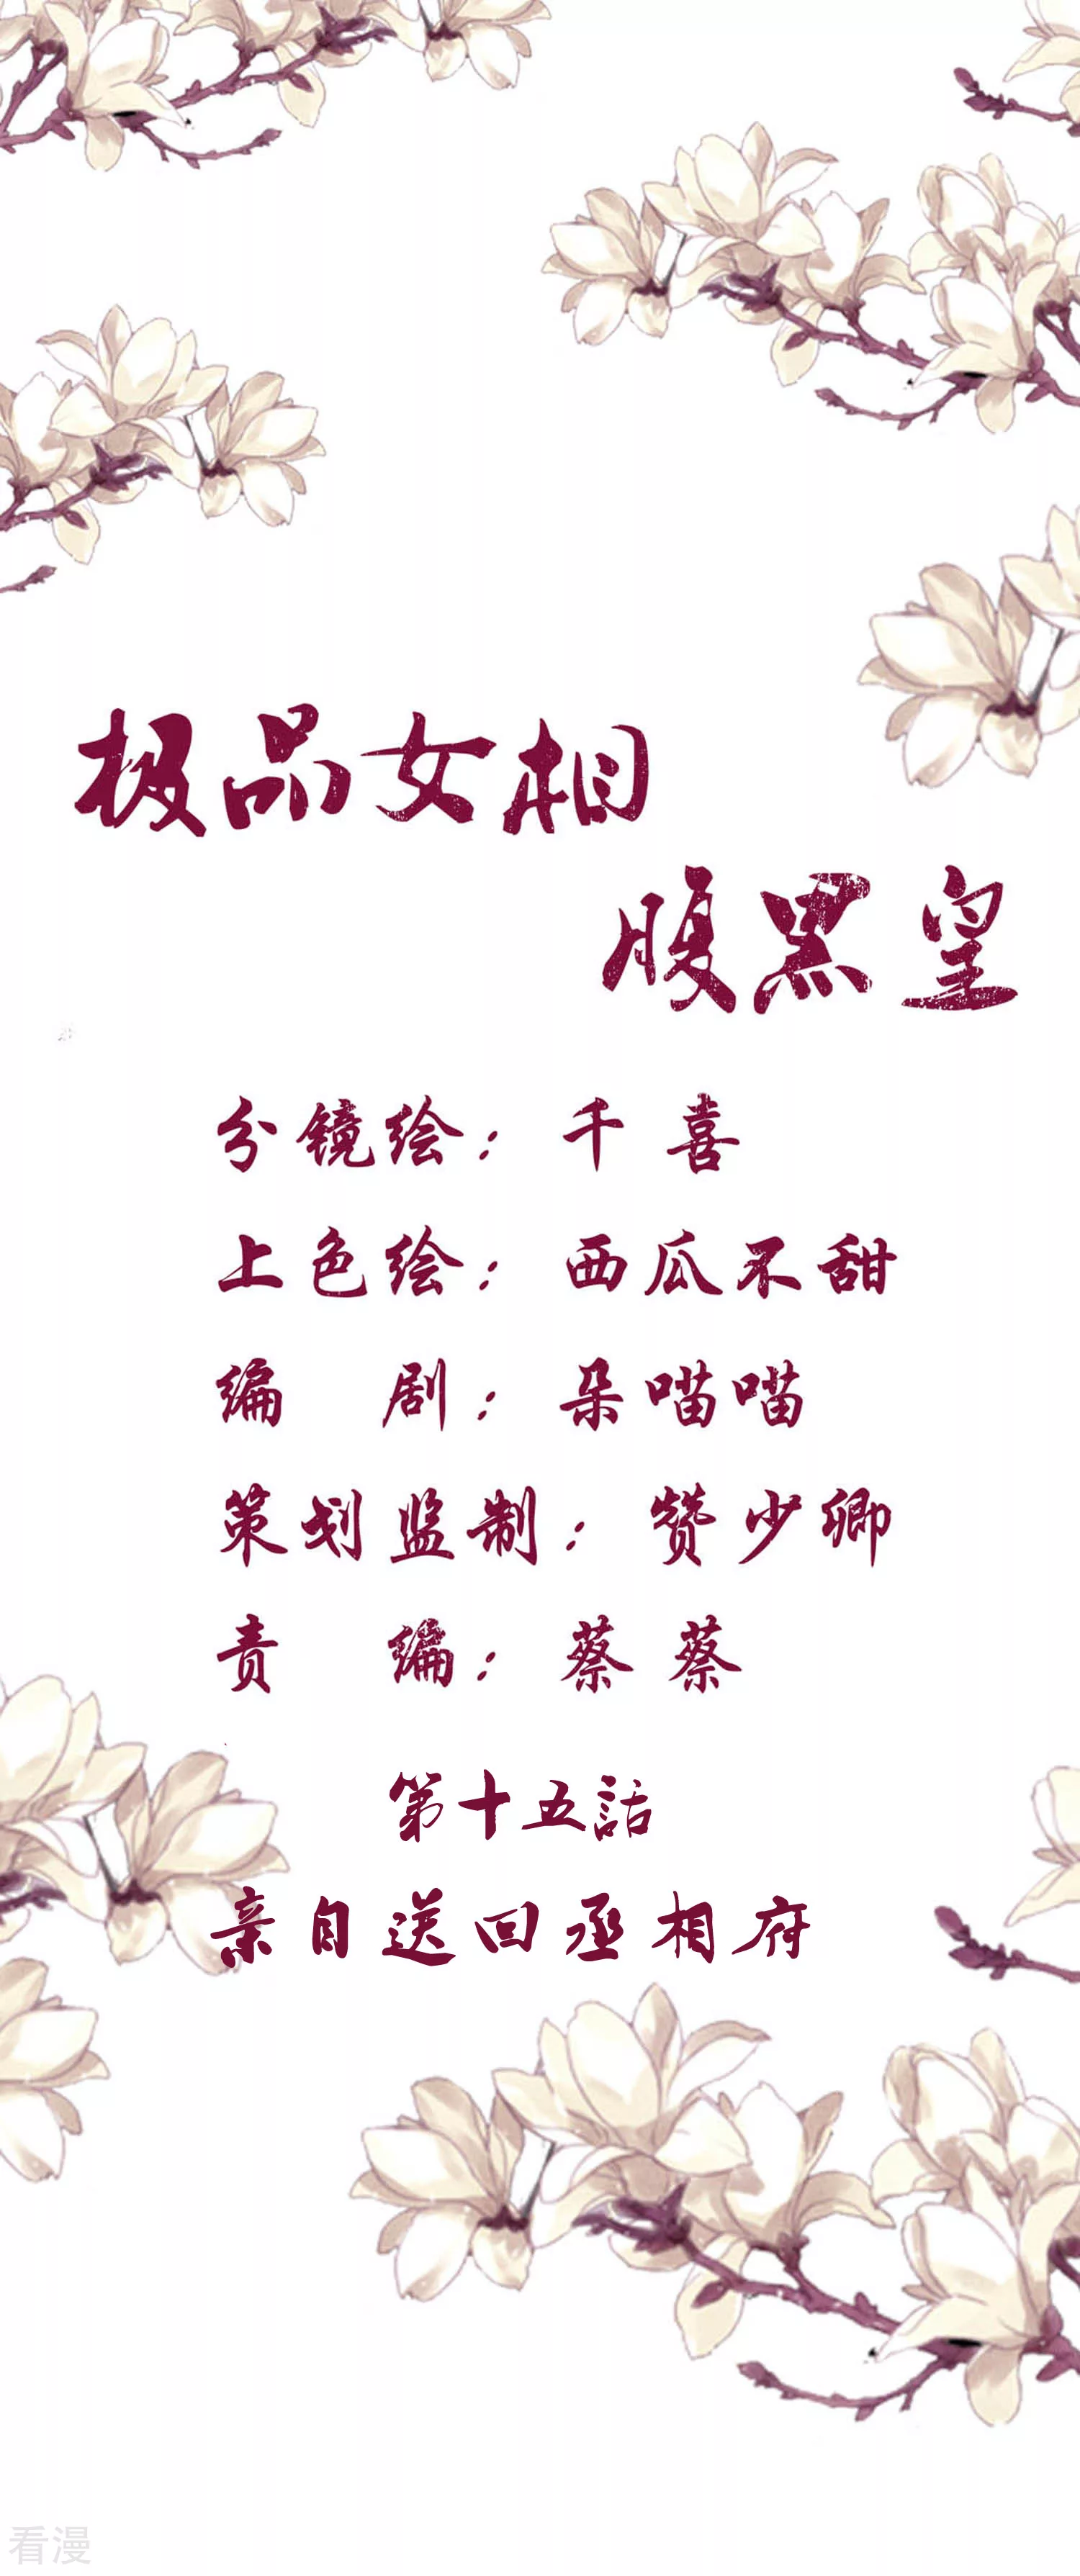 极品女相
腹黑皇
分镜绘：千喜
上色绘：西瓜不甜
编 剧：朵喵喵
策划监制：赞少卿
责 编：蔡蔡
第十五話
亲自送回丞相府
看漫